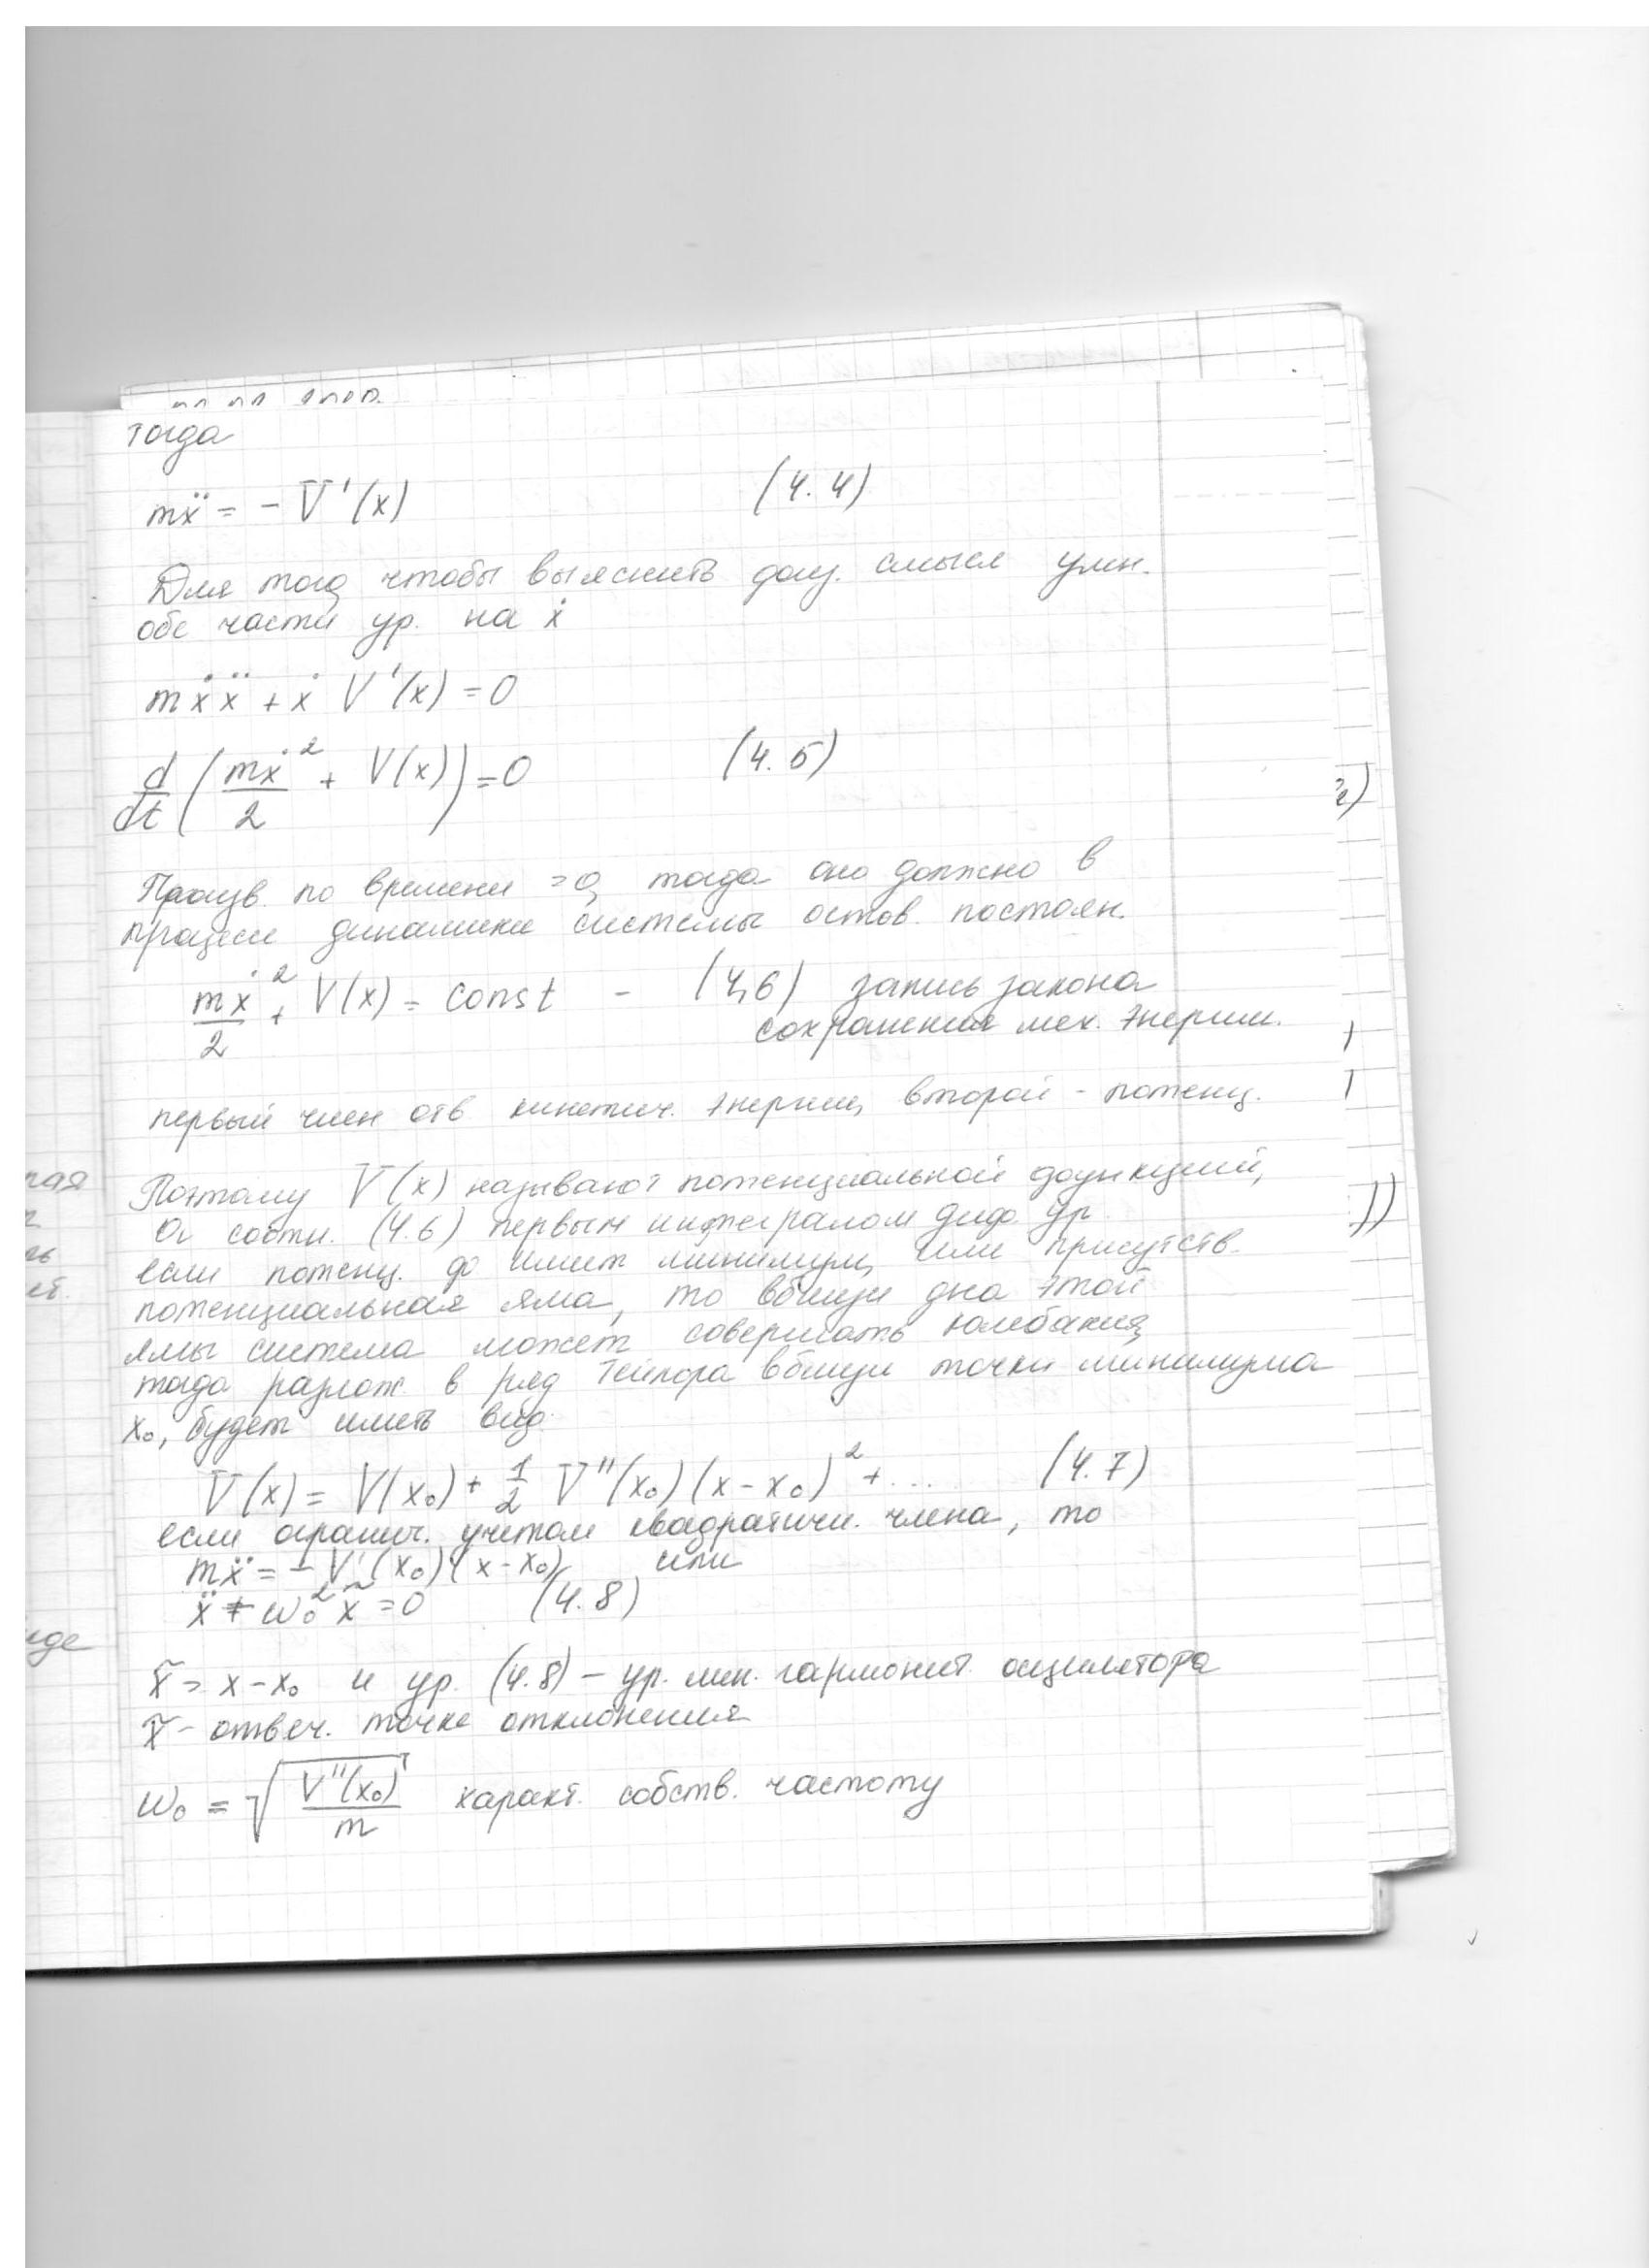 тогда
mẍ = - V'(x) (4.4)
Для того, чтобы выяснить физ. смысл умн.
обе части ур. на ẋ
mẋẍ + ẋ V'(x) = 0
d/dt (mẋ²/2 + V(x)) = 0 (4.5)
Произв. по времени = 0, тогда оно должно в
процессе динамики системы остов. постоян.
mẋ²/2 + V(x) = const - (4,6) запись закона
сохранения мех. энергии.
первый член отв кинетич. энергии, второй - потенц.
Поэтому V(x) называют потенциальной функцией,
а соотн. (4.6) первым интегралом диф. ур.
если потенц. ф имеет минимум, или присутств.
потенциальная яма, то вблизи дна этой
ямы система может совершать колебания,
тогда разлож. в ряд Тейлора вблизи точки минимума
x₀, будет иметь вид.
V(x) = V(x₀) + 1/2 V''(x₀)(x - x₀)² + ... (4.7)
если огранич. учетом квадратичн. члена, то
mẍ = - V'(x₀)(x - x₀) или
ẍ + ω₀² x̃ = 0 (4.8)
x̃ = x - x₀ и ур. (4.8) - ур. лин. гармонич. осцилятора
x̃ - отвеч. точке отклонения
ω₀ = √(V''(x₀)/m) характ. собств. частоту